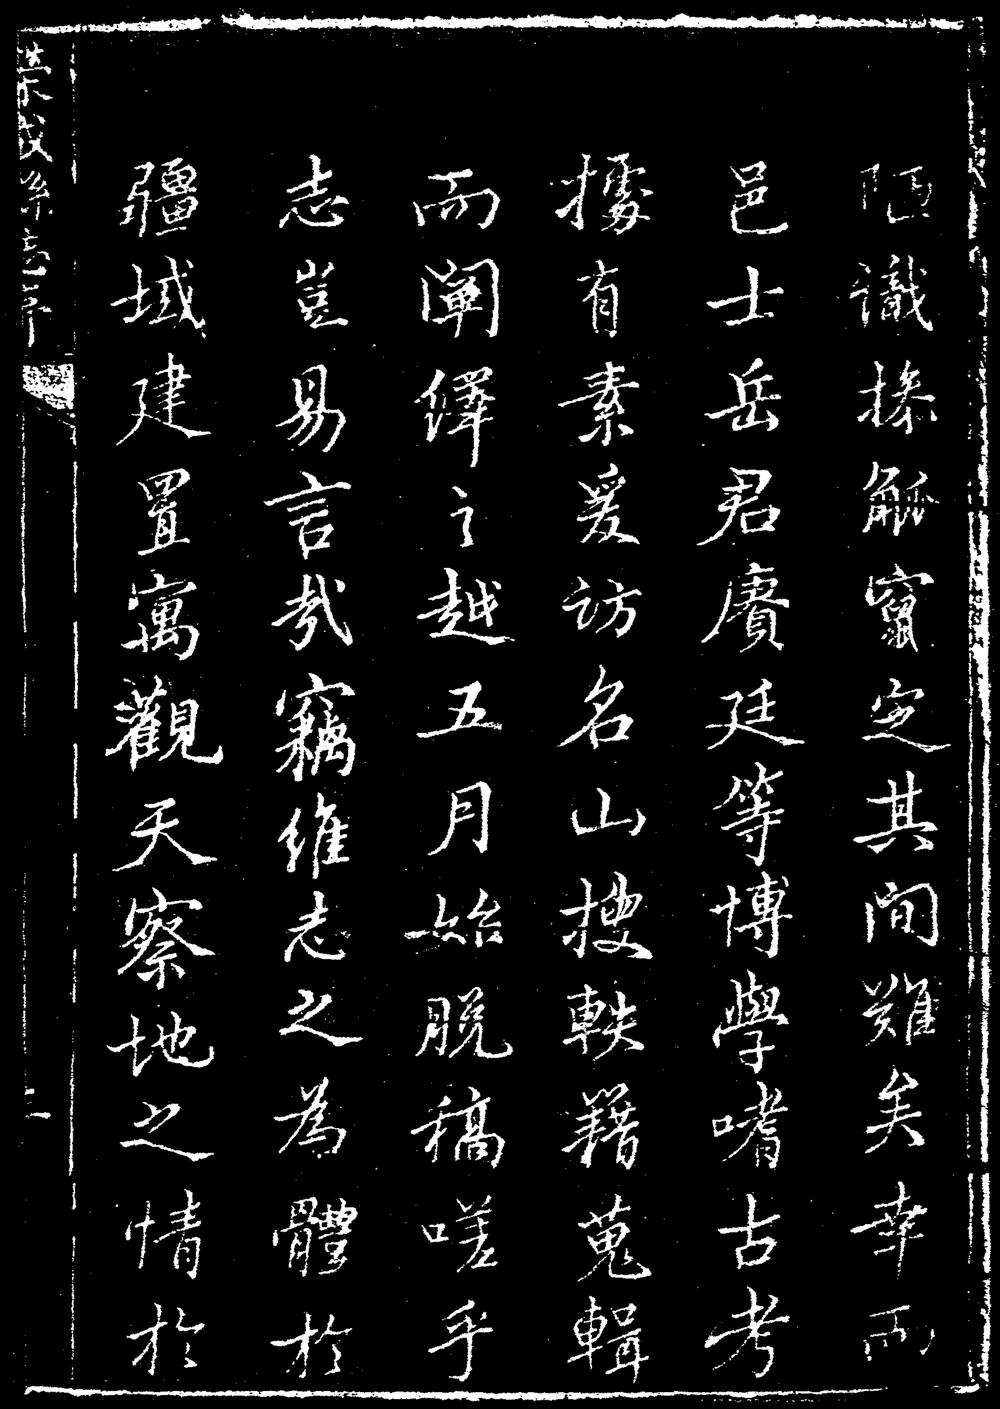 陋識操觚竄定其間難矣幸而
邑士岳君賡廷等博學嗜古考
據有素爰訪名山搜軼籍蒐輯
而闡繹之越五月始脫稿嗟乎
志豈易言哉竊維志之為體於
疆域建置寓觀天察地之情於
縣志序
二